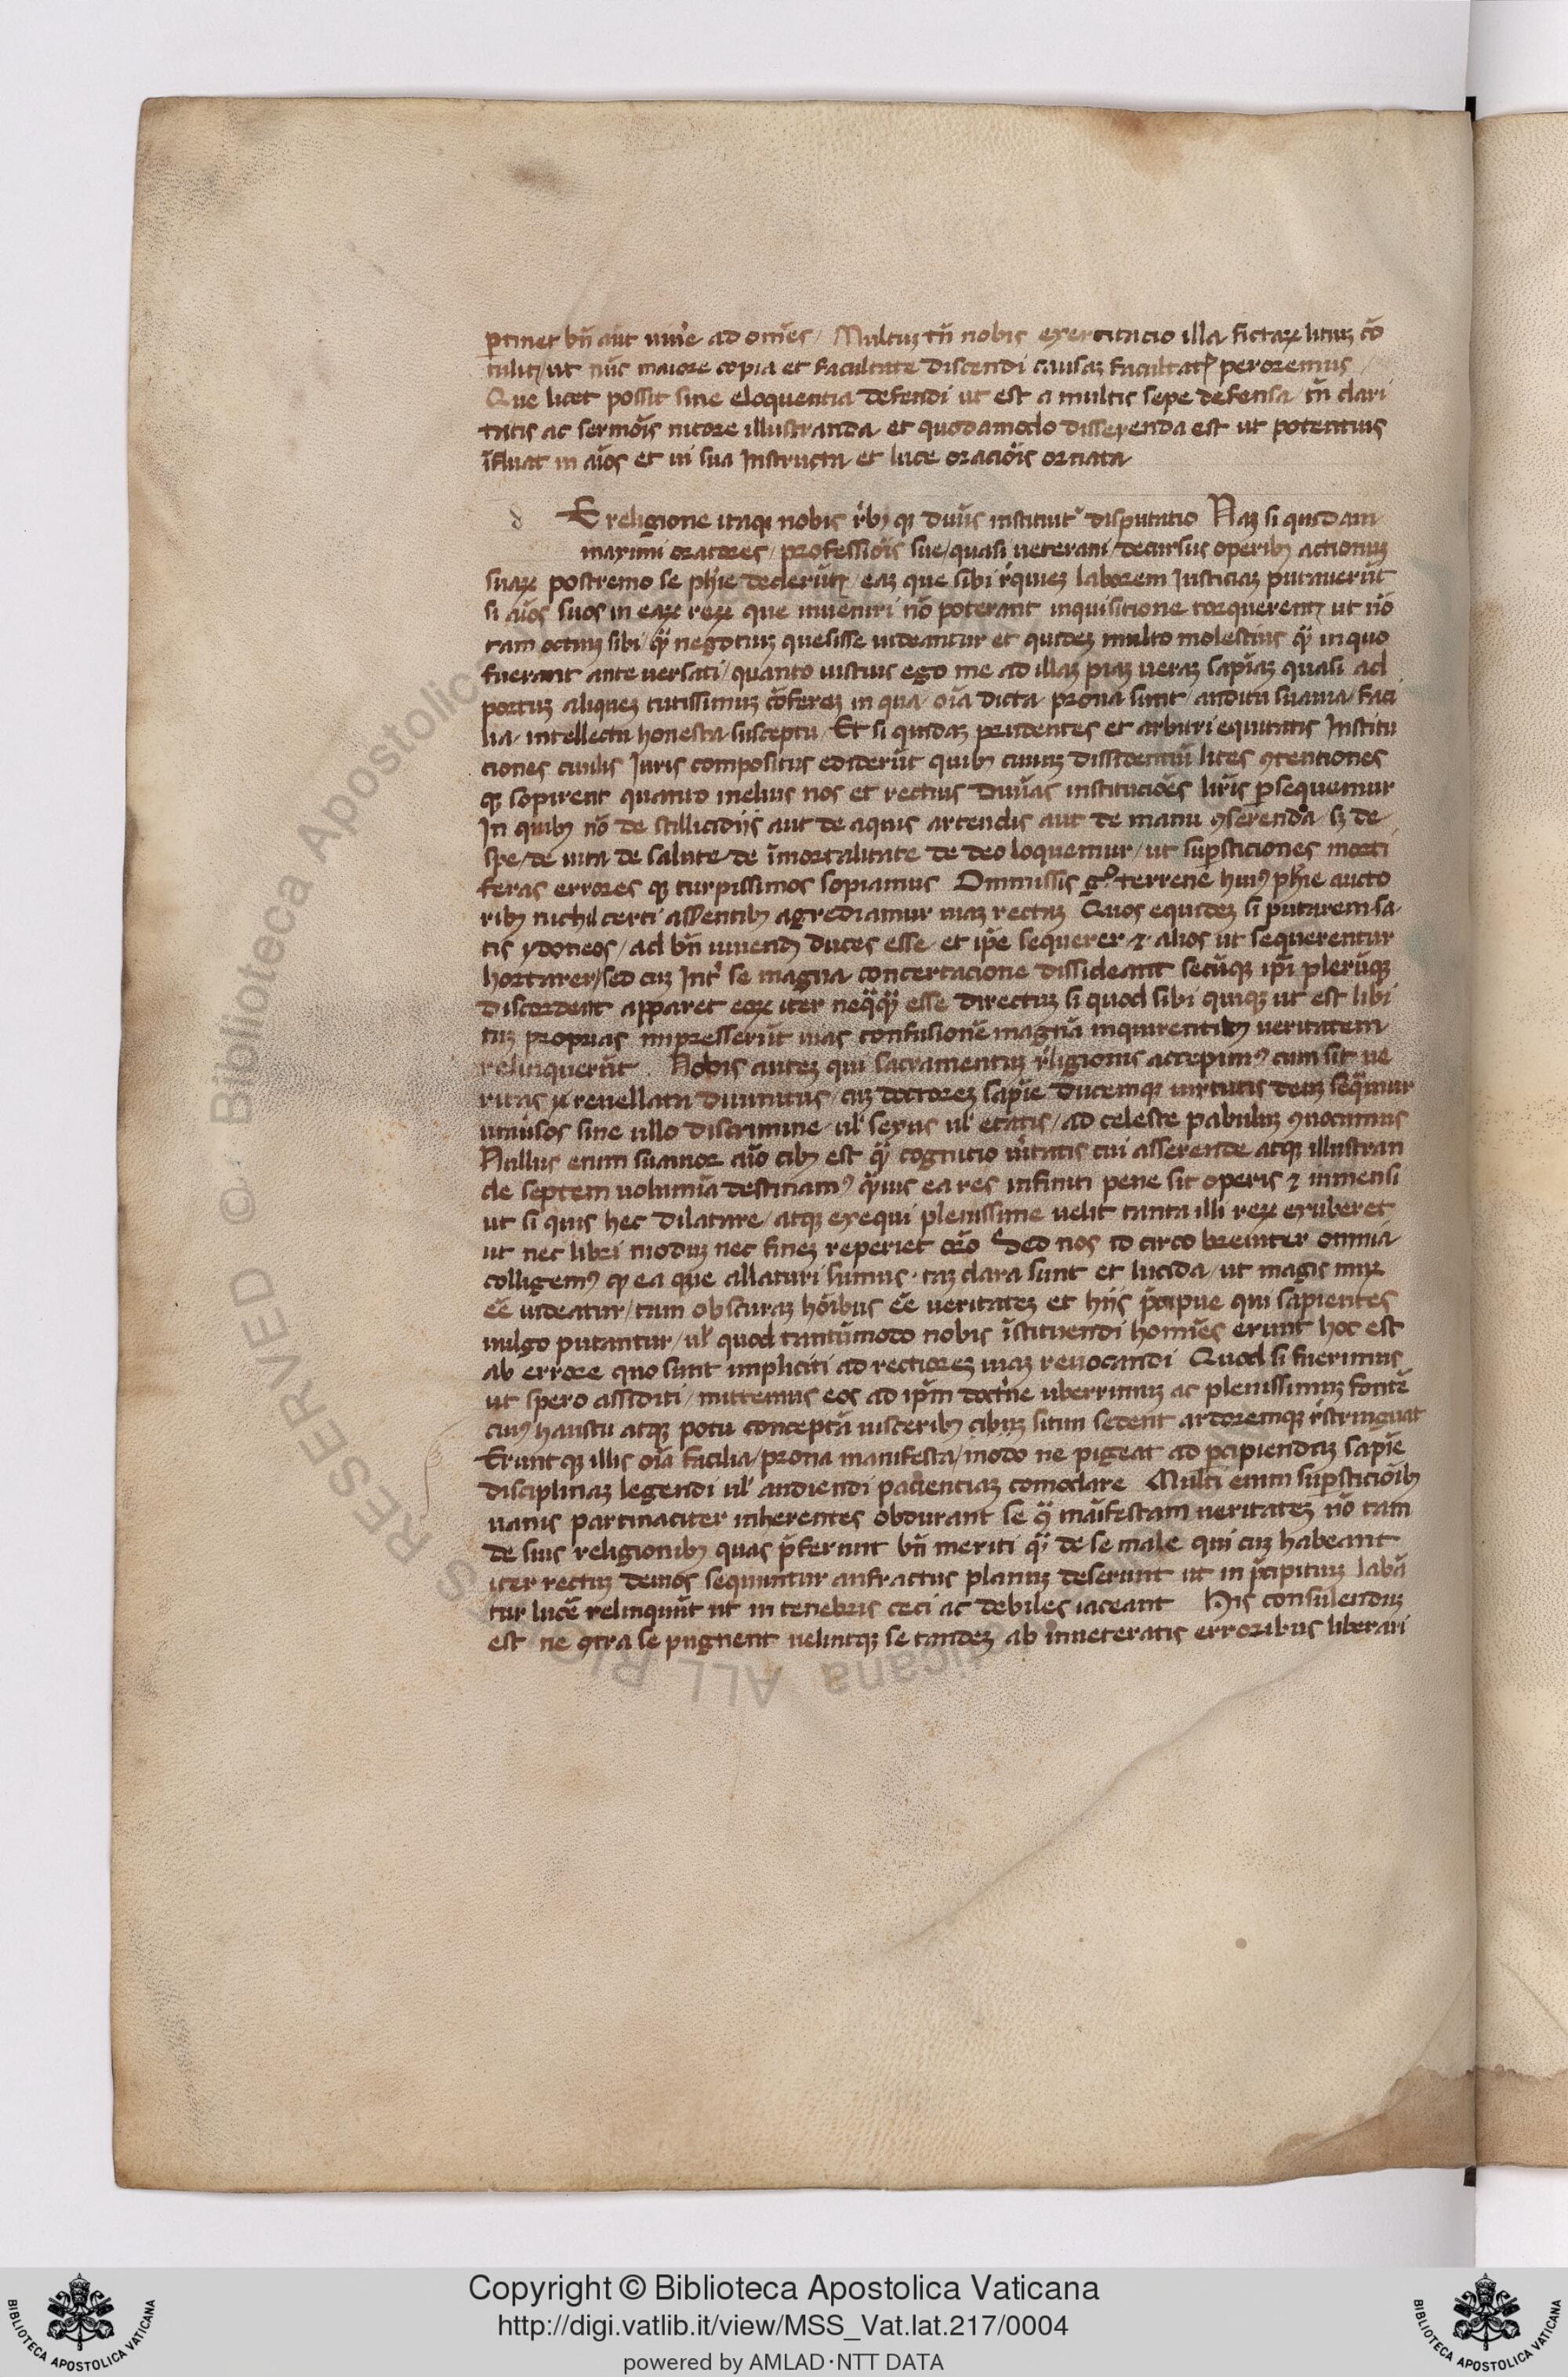 ptinet bn̄ aut uiu'e ad om̄es / Multuʒ tn̄ nobis exercitacio illa fictaꝝ litiuʒ cō
tulit / ut nūc maiore copia et facultate dicendi causaʒ facultatꝭ peroremus /
Que licet possit sine eloquentia defendi ut est a multis sepe defensa / tn̄ clari
tatis ac sermōis nitore illustranda et quodamodo disserenda est ut potentius
īfluat in aīos et ui sua Instructa et luce oracōis ornata
d E religione itaqꝫ nobis r'bꝫ qꝫ diuīs instituit᷑ disputatio Naʒ si quidam
maximi oratores / professiōis sue / quasi ueterani / decursis operibꝫ actionuʒ
suaꝝ postremo se ph'ie dederūt / eaʒ que sibi r'quieʒ laborem Iusticiaʒ putauerūt
si aīos suos in eaꝝ reꝝ que inueniri nō poterant inquisitione torquerent / ut nō
tam ociuʒ sibi / qͣ̄ negotiuʒ quesisse uideantur et quideʒ multo molestius qͣ̄ in quo
fuerant ante uersati / quanto iustius ego me ad illaʒ piaʒ ueraʒ sapīaʒ quasi ad
portuʒ aliqueʒ tutissimuʒ cōfereʒ in qua oīa dicta prona sunt auditu suauia faci
lia intellectu honesta susceptu / Et si quidaʒ prudentes et arbitri equitatis Institu
ciones ciuilis Iuris compositas ediderūt quibꝫ ciuiuʒ dissidentiū lites ꝯtentiones
qꝫ sopirent quanto melius nos et rectius diuīas institucōes litt'is ꝑsequemur
In quibꝫ nō de stillicidijs aut de aquis arcendis aut de manu ꝯserenda / sꝫ de
spe / de uita de salute de īmortalitate de deo loquemur / ut supsticiones morti
feras errores qꝫ turpissimos sopiamus Ommissis gͦ terrene huiꝰ ph'ie aucto
ribꝫ nichil certi afferentibꝫ agrediamur uiaʒ rectaʒ Quos equideʒ si putarem sa
tis ydoneos / ad bn̄ uiuendꝫ duces esse et ip̄e sequerer ⁊ alios ut sequerentur
hortarer / sed cuʒ Int' se magna concertacione dissideant secūqꝫ ip̄i plerūqꝫ
discordent apparet eoꝝ iter neqͣqͣ̄ esse directuʒ si quod sibi quiqꝫ ut est libi
tuʒ proprias impresserūt uias confusionē magnā inquirentibꝫ ueritatem
relinquerūt . Nobis auteʒ qui sacramentuʒ r'ligionis accepimꝰ cum sit ue
ritas reuellata diuinitus / cuʒ doctoreʒ sapīe ducemqꝫ uirtutis deuʒ seqͣmur
uniuſos sine ullo discrimine ul' sexus ul' etatis / ad celeste pabuluʒ ꝯuocamus
Nullus enim suauior aīo cibꝫ est qͣ̄ cognicio u'itatis cui asserende atqꝫ illustran
de septem uolumīa destinamꝰ qͣ̄uis ea res infiniti pene sit operis ⁊ inmensi
ut si quis hec dilatare / atqꝫ exequi plenissime uelit tanta illi reꝝ exuberet
ut nec libri moduʒ nec fineʒ reperiet orō Sed nos id circo breuiter omnia
colligemꝰ qꝫ ea que allaturi sumus taʒ clara sunt et lucida / ut magis miꝝ
ēē uideatur / tam obscuraʒ hōibus ēē ueritateʒ et hijs p̄cipue qui sapientes
uulgo putantur / ul' quod tantūmodo nobis īstituendi homīes erunt hoc est
ab errore quo sunt impliciti ad rectioreʒ uiaʒ reuocandi Quod si fuerimus
ut spero assiditi / mittemus eos ad ip̄m doct'ne uberrimuʒ ac plenissimuʒ fontē
cuiꝰ haustu atqꝫ potu conceptā uisceribꝫ cibuʒ sitim sedent ardoremqꝫ r'stringuat
Erunt qꝫ illis oīa facilia / prona manifesta / modo ne pigeat ad pcipiendaʒ sapīe
disciplinaʒ legendi ul' audiendi pacientiaʒ comodare Multi enim supsticiōibꝫ
uanis partinaciter inherentes obdurant se qͣ maīfestam ueritateʒ nō tam
de suis religionibꝫ quas p̄ferunt bn̄ meriti qͣ̄ de se male qui cuʒ habeant
iter rectuʒ deuios sequuntur anfractus planuʒ deserunt ut in p̄cipituʒ labā
tur lucē relinquūt ut in tenebris ceci ac debiles iaceant His consulenduʒ
est ne ꝯtra se pugnent uelintqꝫ se tandeʒ ab inueteratis erroribus liberari
Copyright © Biblioteca Apostolica Vaticana
http://digi.vatlib.it/view/MSS_Vat.lat.217/0004
powered by AMLAD·NTT DATA
BIBLIOTECA APOSTOLICA VATICANA
BIBLIOTECA APOSTOLICA VATICANA